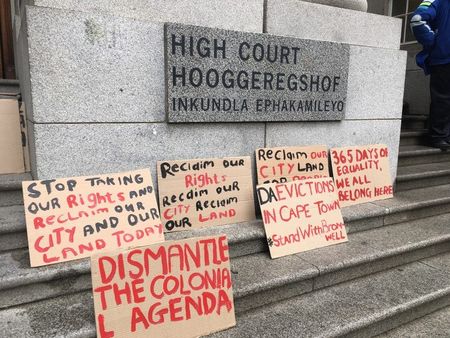 HIGH COURT
HOOGGEREGSHOF
INKUNDLA EPHAKAMILEYO
STOP TAKING
OUR RIGHTS AND
RECLAIM OUR
CITY AND OUR
LAND TODAY
RECLAIM OUR
RIGHTS
RECLAIM OUR
CITY RECLAIM
OUR LAND
RECLAIM OUR
CITY LAND
DA EVICTIONS
IN CAPE TOWN
#StandWith
WELL
365 DAYS OF
EQUALITY,
WE ALL
BELONG HERE
DISMANTLE
THE COLONIAL
L AGENDA